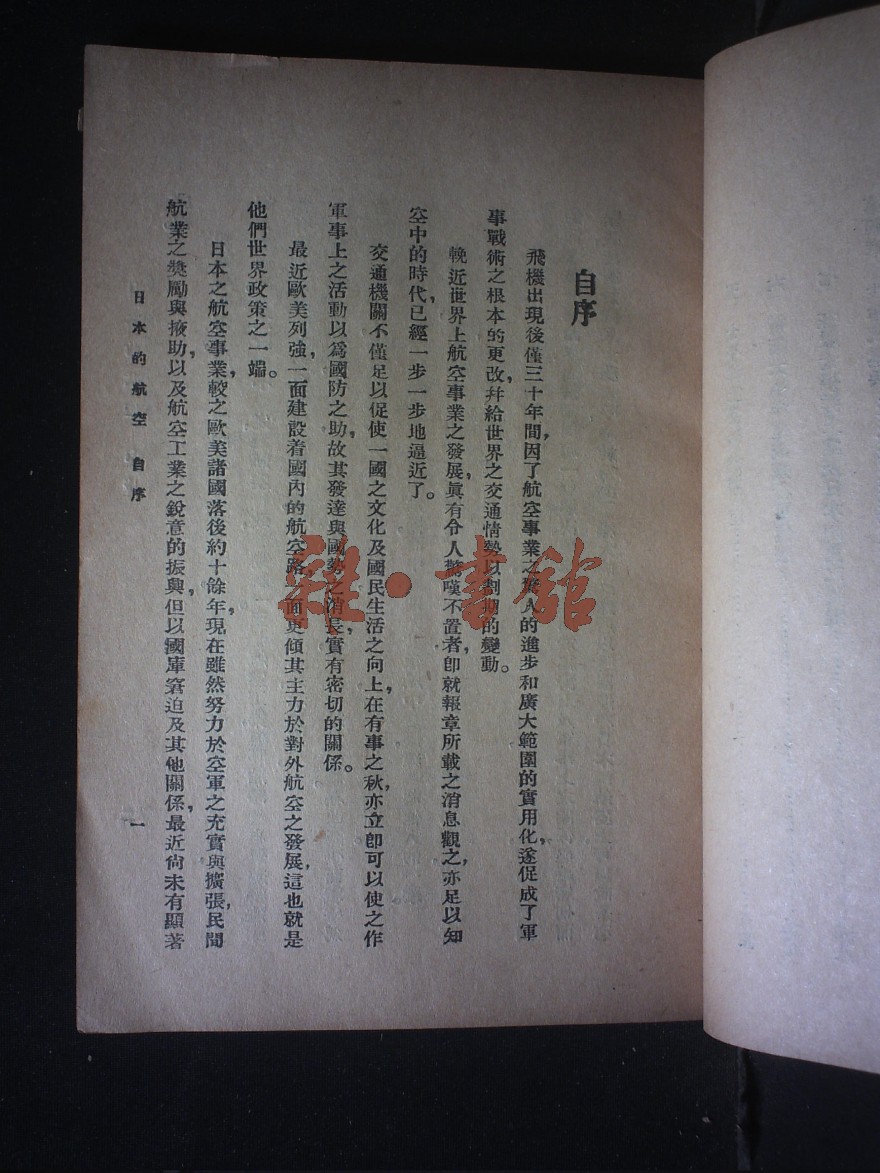 自序
飛機出現後僅三十年間，因了航空事業之驚人的進步和廣大範圍的實用化，遂促成了軍
事戰術之根本的更改，幷給世界之交通情勢以劃期的變動。
輓近世界上航空事業之發展，眞有令人驚嘆不置者，卽就報章所載之消息觀之，亦足以知
空中的時代，已經一步一步地逼近了。
交通機關不僅足以促使一國之文化及國民生活之向上，在有事之秋，亦立卽可以使之作
軍事上之活動以爲國防之助，故其發達與國勢之消長，實有密切的關係。
最近歐美列強，一面建設着國內的航空路，一面更傾其主力於對外航空之發展，這也就是
他們世界政策之一端。
日本之航空事業，較之歐美諸國落後約十餘年，現在雖然努力於空軍之充實與擴張，民間
航業之獎勵與掖助，以及航空工業之銳意的振興，但以國庫窘迫及其他關係，最近尙未有顯著
日本的航空 自序
一
雜·書館